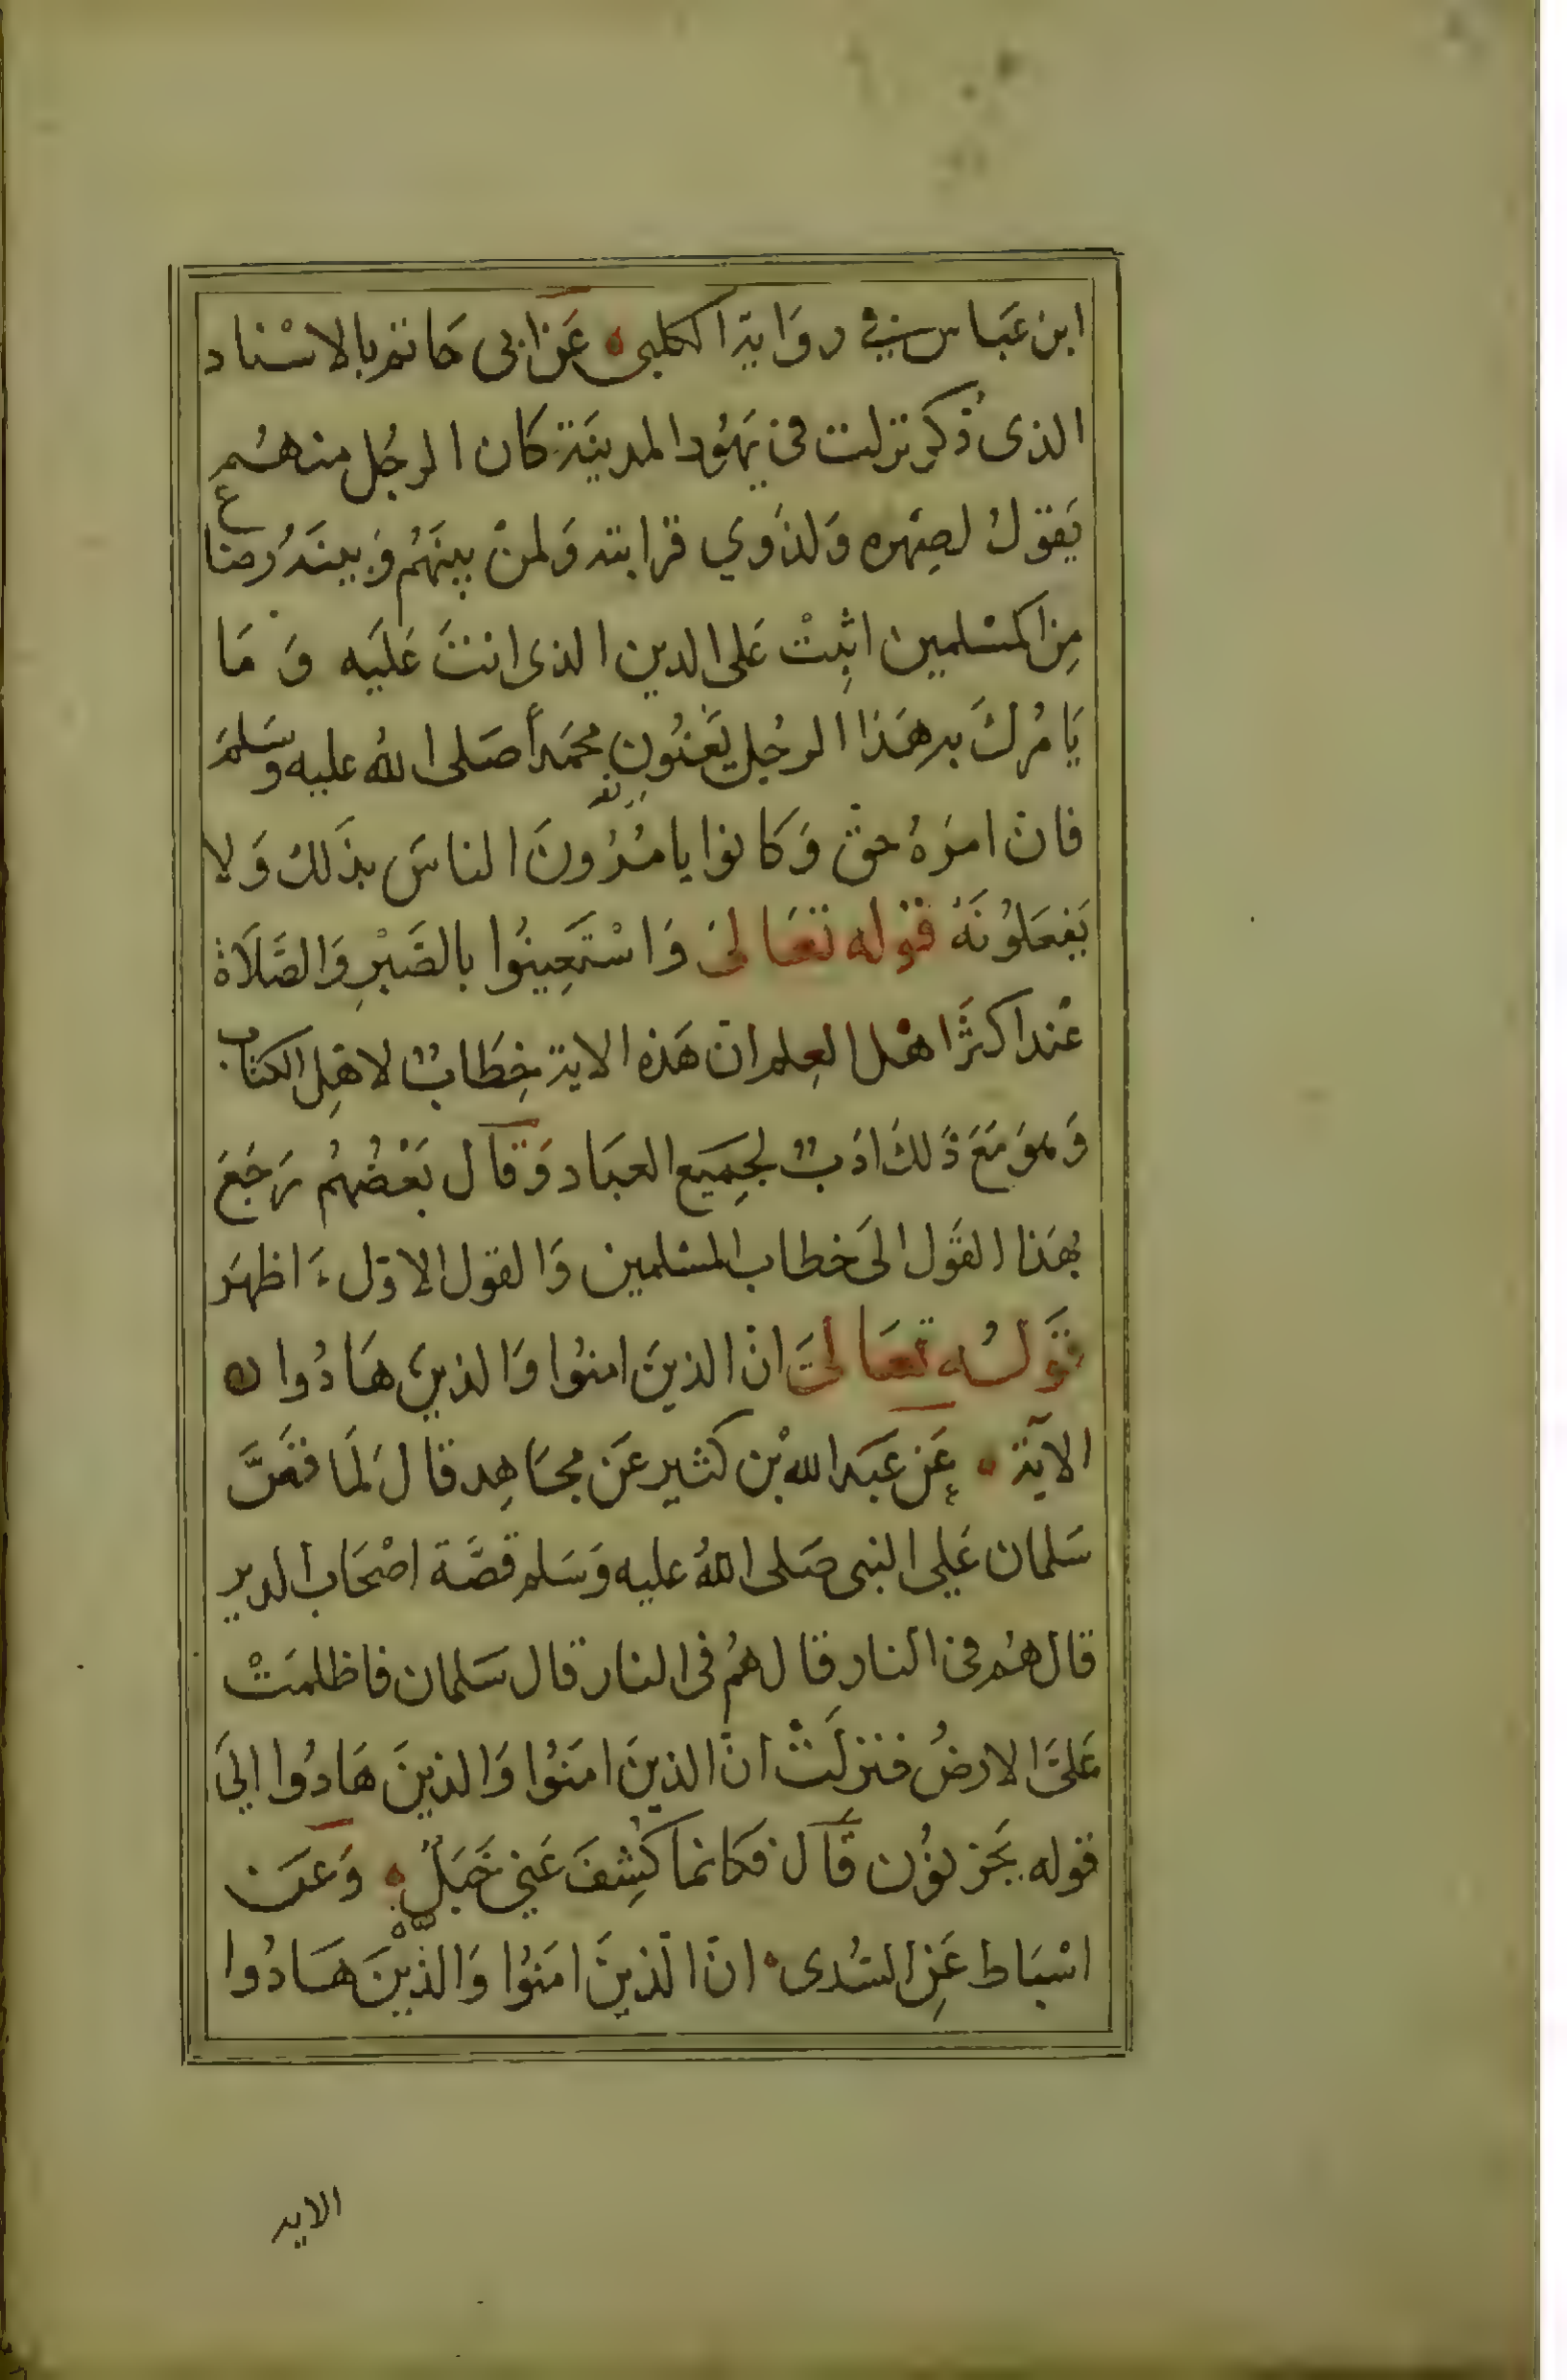 ابن عَباس في روَاية الكلبي عَن ابى حَاتم بالاسْناد
الذى ذُكر نزلت فى يَهُود المدينَة كان الرجُل منهُم
يَقولُ لصِهره وَلذَوي قرابته وَلمنْ بينَهُم وَبينَهُ رضاع
مِن المسْلمين اثبِتْ عَلى الدين الذى انتَ عَلَيه وَ مَا
يَامُركَ به هَذا الرجُل يَعْنُون محمَداً صَلى اللهُ عليه وسَلمَ
فانّ امرَهُ حقّ وَكانوا يامُرُونَ الناسَ بذَلكَ وَلا
يَفعَلوُنَهُ قوله تعَالىَ وَاسْتَعِينُوا بالصَبْرِ وَالصَّلَاة
عْند اكثَر اهْل العِلم انّ هَذه الاية خِطَابٌ لاهْلِ الكتاب
وَهوَ مَعَ ذَلكَ ادَبٌ لجِمَيع العبَاد وَقال بَعْضُهُم رَجَعَ
بهَذا القَول الىَ خطاب المسْلمين وَالقول الاوّل اظهَر
قَولُه تعَالىَ انّ الذينَ امنُوا وَالذينَ هَادُوا
الآيَة عَن عَبَد الله بْن كثير عَن مجَاهِد قالَ لَما قصَّ
سَلمان عَلي النبى صَلى اللهُ عليه وَسَلم قصَّة اصْحَاب الدير
قال هُم فى النار قال هُم فى النار قال سَلمان فاظلمَتْ
عَلىَّ الارضُ فنزلَتْ انّ الذينَ امَنُوا وَالذينَ هَادُوا اليَ
قوله يَحزنوُن قال فكانما كُشِفَ عَني جَبَلٌ وَعَن
اسْبَاط عَنِ السُدى انّ الّذينَ امَنُوا وَالذّيْنَ هَادُوا
الايه